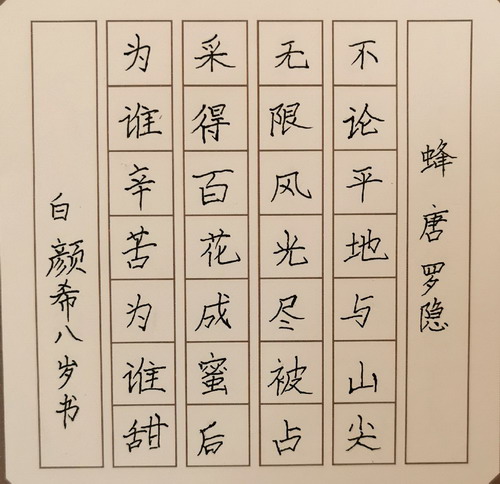 蜂 唐 罗隐
不论平地与山尖
无限风光尽被占
采得百花成蜜后
为谁辛苦为谁甜
白颜希八岁书